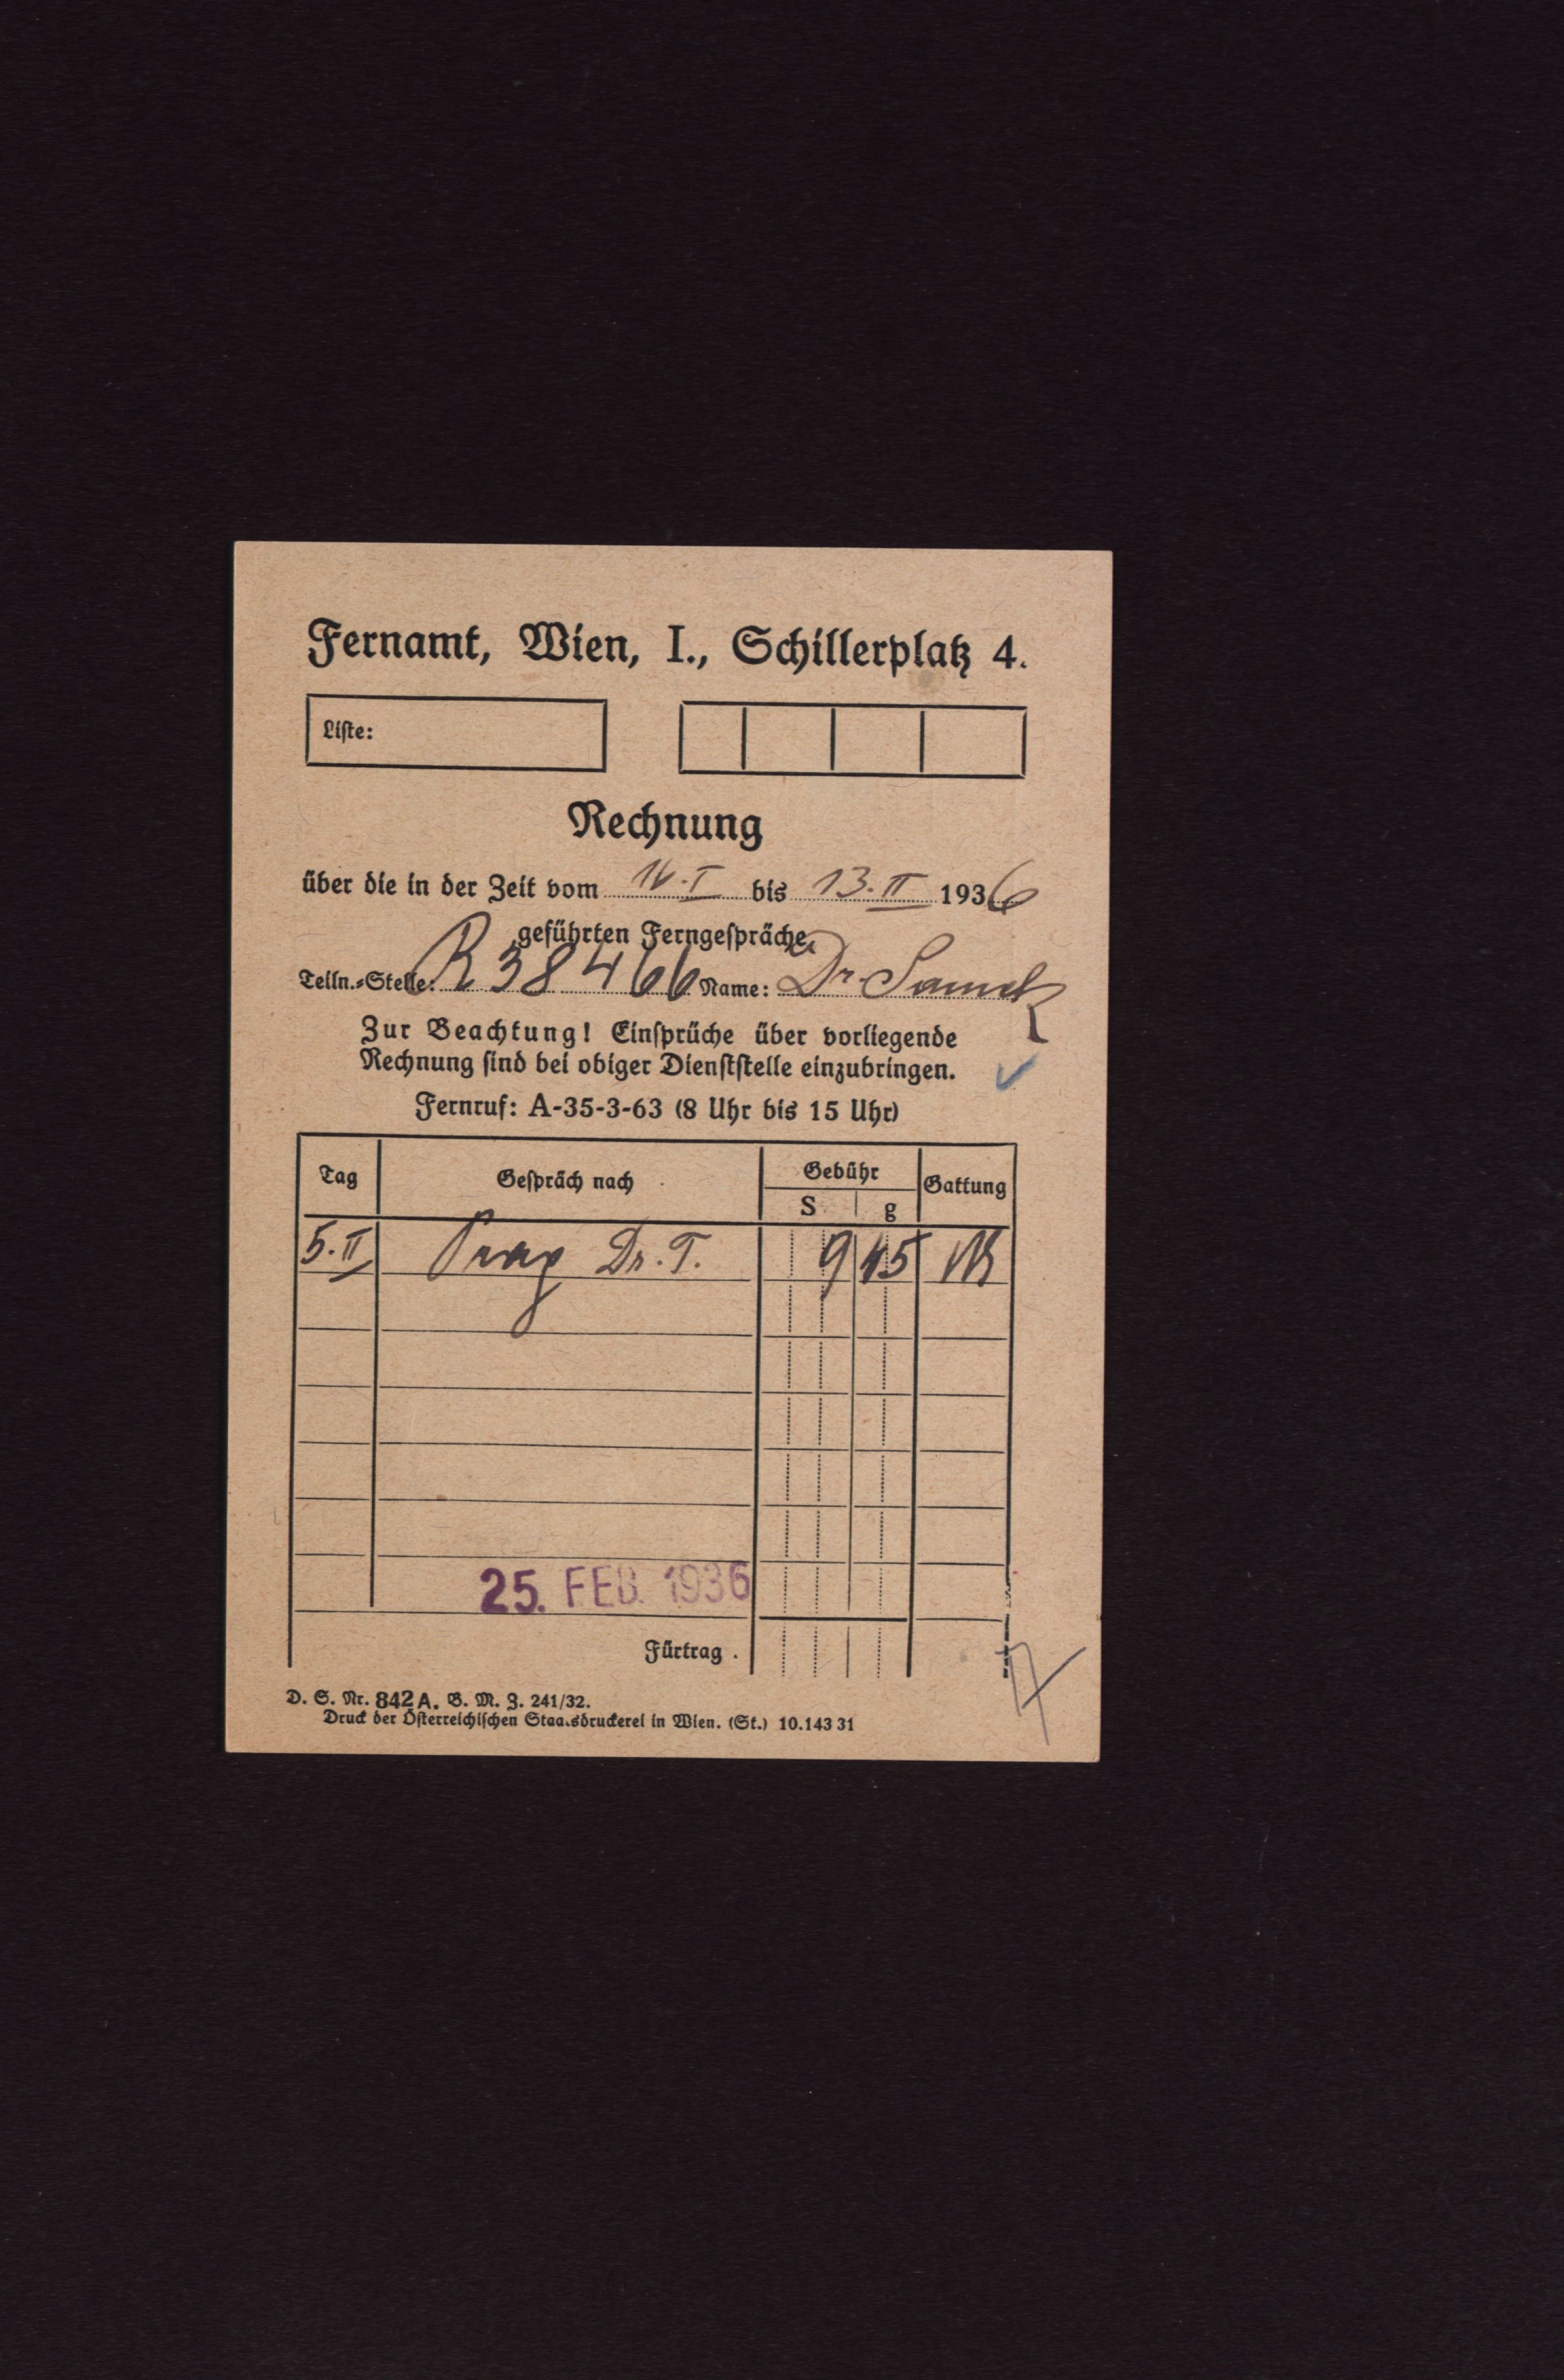 Fernamt, Wien, I., Schillerplatz 4.
Liste:
Rechnung
über die in der Zeit vom 14.I bis 13.II 1936
geführten Ferngespräche
Teiln.-Stelle: R 38 4 66 Name: Dr. Samek
Zur Beachtung! Einsprüche über vorliegende
Rechnung sind bei obiger Dienststelle einzubringen.
Fernruf: A-35-3-63 (8 Uhr bis 15 Uhr)
Tag Gespräch nach Gebühr Gattung
S g
5.II Prag Dr. T. 9 45
25. FEB. 1936
Fürtrag .
D. S. Nr. 842 A. B. M. Z. 241/32.
Druck der Österreichischen Staatsdruckerei in Wien. (St.) 10.143 31